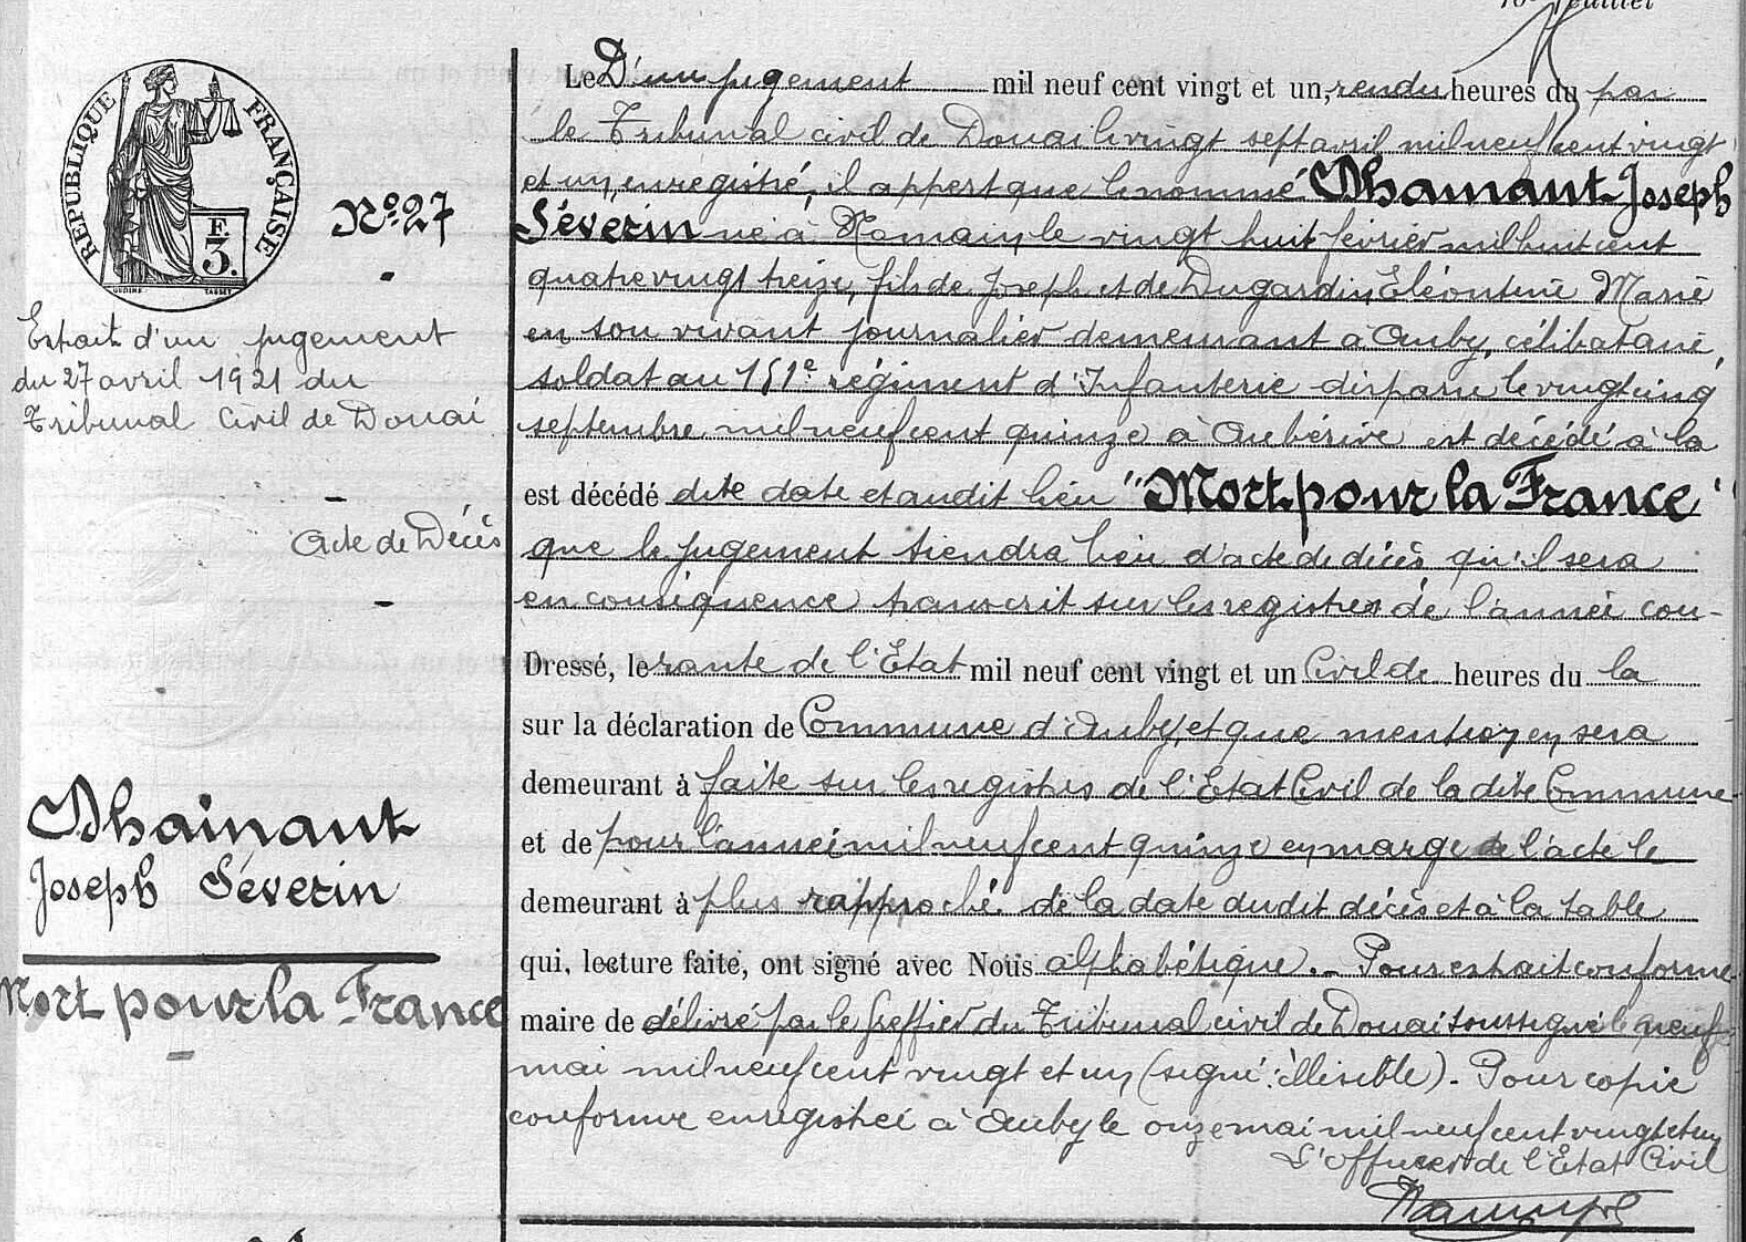 RÉPUBLIQUE FRANÇAISE
F.
3.
OUDINÉ. TASSET.
N° 27
Extrait d'un jugement
du 27 avril 1921 du
Tribunal Civil de Douai
Acte de Décès
Dhainant
Joseph Séverin
Mort pour la France
Feuillet
Le D'un jugement mil neuf cent vingt et un, rendu heures du par
le Tribunal civil de Douai le vingt sept avril mil neuf cent vingt
et un, enregistré, il appert que le nommé Dhainant Joseph
Séverin né à le vingt huit février mil huit cent
quatre vingt treize, fils de Joseph et de Dugardin, Eléontine Marie
en son vivant journalier demeurant à Auby, célibataire,
soldat au 151e régiment d'Infanterie disparu le vingt cinq
septembre mil neuf cent quinze à Aubérive est décédé à la
est décédé dite date et audit lieu "Mort pour la France"
que le jugement tiendra lieu d'acte de décès qu'il sera
en conséquence transcrit sur les registres de l'année cou-
Dressé, le rante de l'Etat mil neuf cent vingt et un Civil de heures du la
sur la déclaration de Commune d'Auby, et que mention en sera
demeurant à faite sur les registres de l'Etat Civil de la dite Commune
et de pour l'année mil neuf cent quinze en marge de l'acte le
demeurant à plus rapproché de la date dudit décès et à la table
qui, lecture faite, ont signé avec Nous alphabétique. - Pour extrait conforme
maire de délivré par le Greffier du Tribunal civil de Douai soussigné le neuf
mai mil neuf cent vingt et un, (signé : illisible). - Pour copie
conforme enregistrée à Auby le onze mai mil neuf cent vingt et un
L'officier de l'Etat Civil